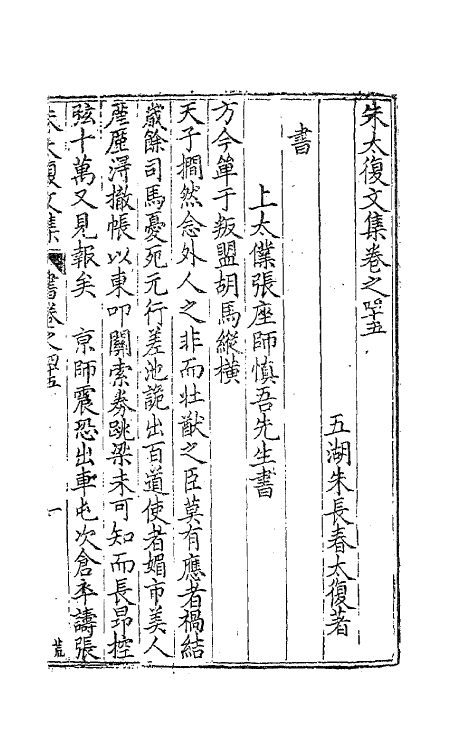 朱太復文集卷之四十五
五湖朱長春太復著
書
上太僕張座師慎吾先生書
方今單于叛盟胡馬縱橫
天子撊然念外人之非而壮猷之臣莫有應者禍結
歲餘司馬憂死元行差池詭出百道使者媚市美人
產厪淂撤帳以東叩關索劵跳梁未可知而長昂控
弦十萬又見報矣 京師震恐出車屯次倉卒譸張
朱太復文集 書卷之四十五 一 荒